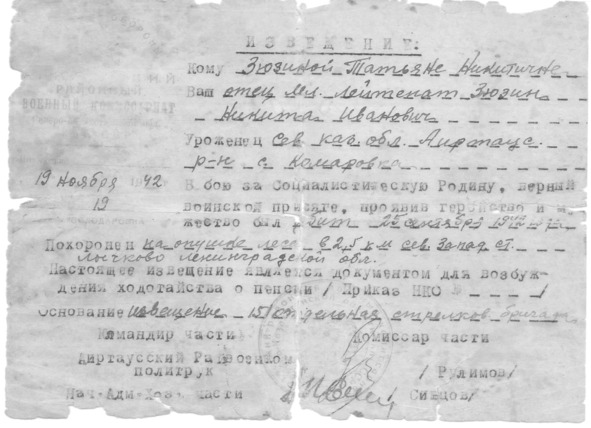 ИЗВЕЩЕНИЕ:
Кому Зюзиной Татьяне Никитичне
Ваш отец мл. лейтенат Зюзин
Никита Иванович
Уроженец Сев каз обл.
р-н с. Комаровка
19 Ноября 42
19
В бою за Социалистическую Родину, верный
воинской присяге, проявив геройство и
жество был 25 сентября 1942
Похоронен на опушке в 2,5 км сев. Запад ст.
Лычково Ленинградской обл.
Настоящее извещение является документом для возбуж-
дения ходотайства о пенсии / Приказ НКО № /
Основание извещение отдельная стрелков бригада
Командир части Комиссар части
политрук / Рулимов/
Нач.Адм-Хоз. части / Сивцов/